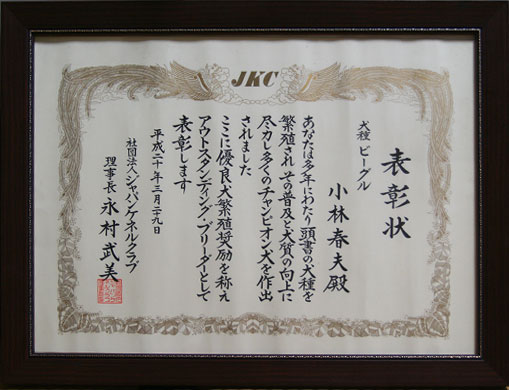 JKC
表彰状
犬種 ビーグル
小林春夫殿
あなたは多年にわたり頭書の犬種を
繁殖され その普及と犬質の向上に
尽力し多くのチャンピオン犬を作出
されました
ここに優良犬繁殖奨励を称え
アウトスタンディング・ブリーダーとして
表彰します
平成二十年三月二十九日
社団法人ジャパンケネルクラブ
理事長 永村武美